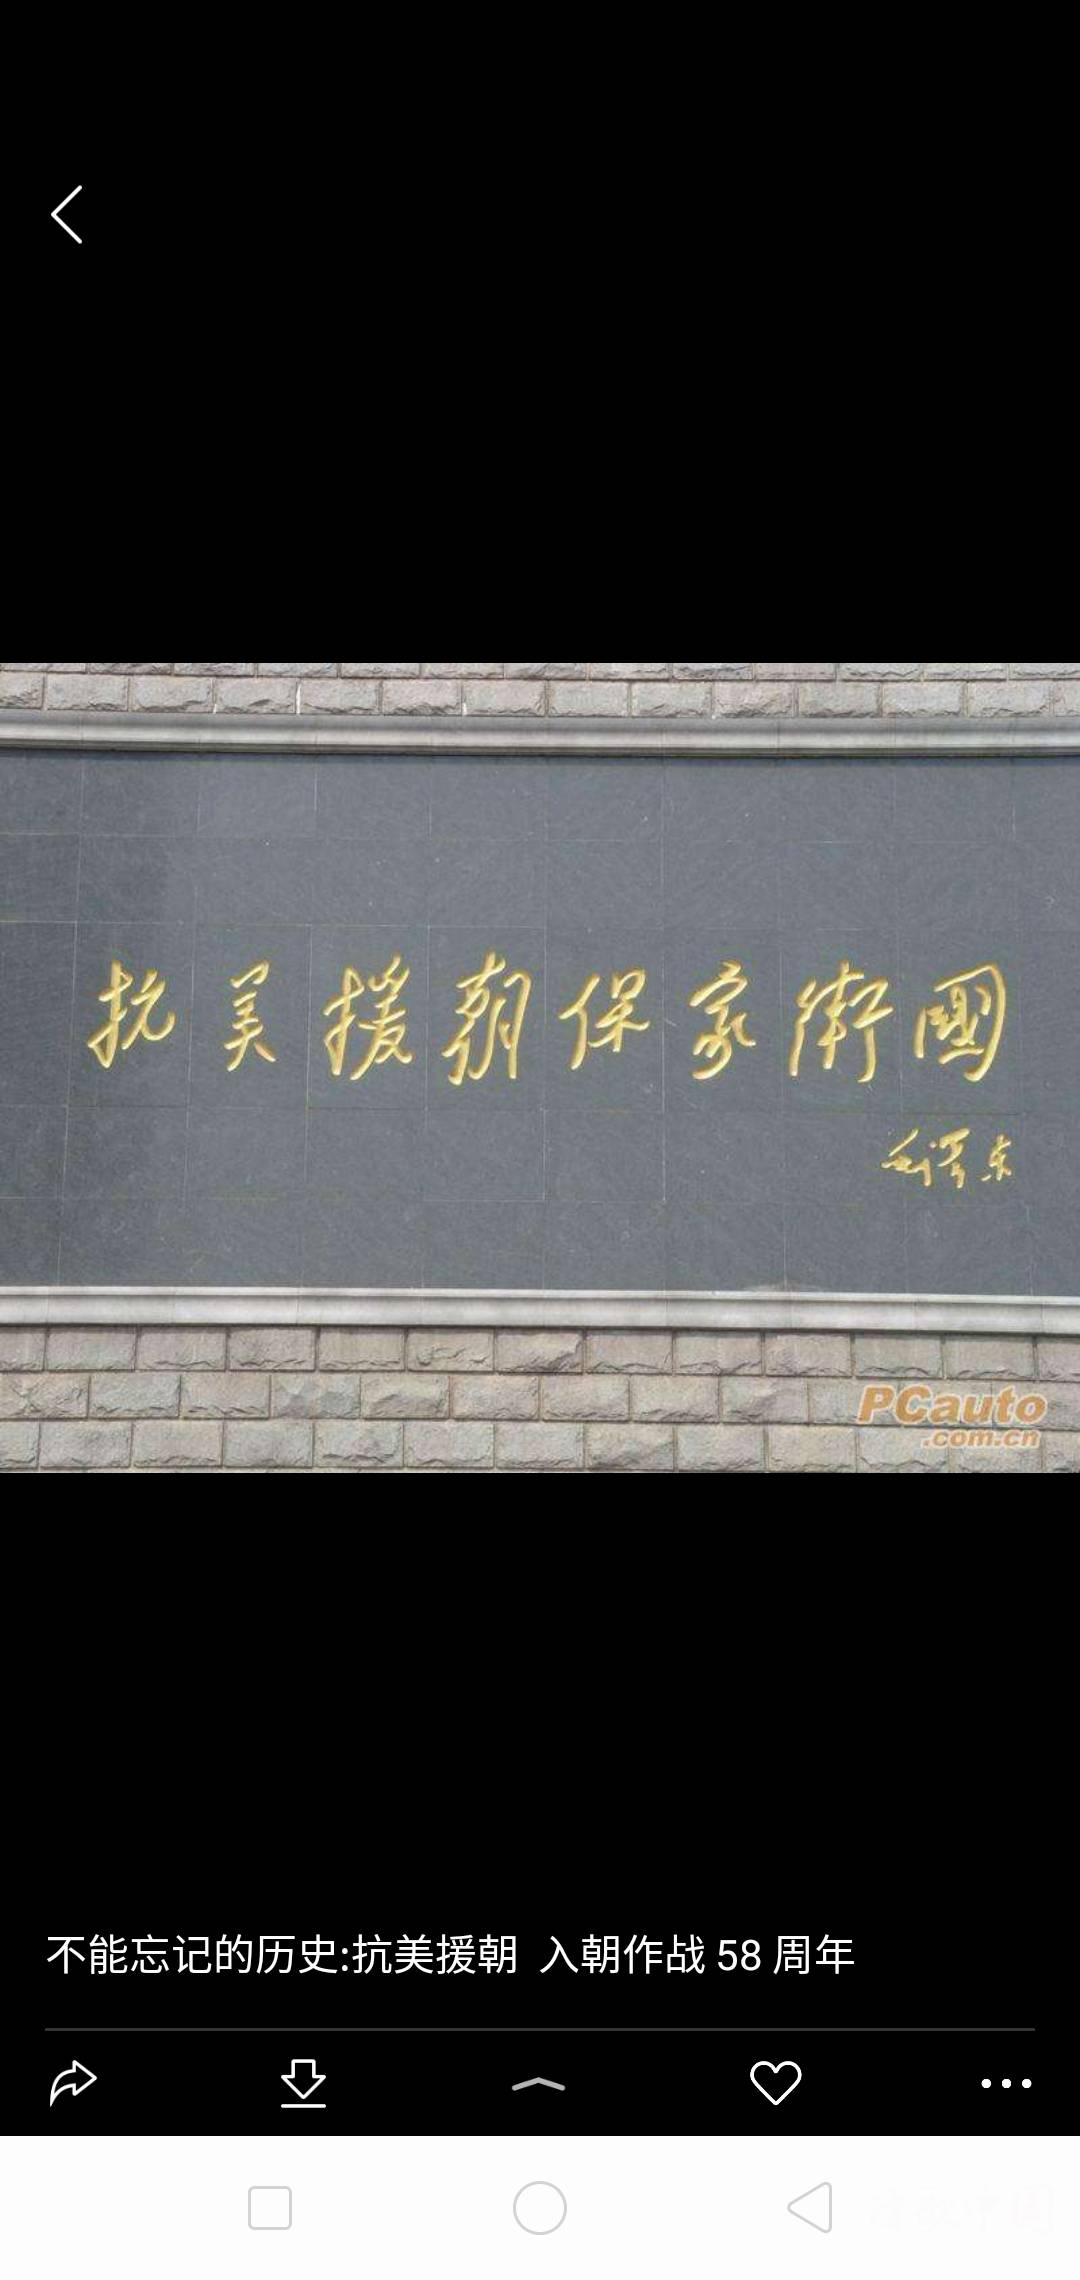 抗美援朝保家衛國
毛泽东
PCauto
.com.cn
不能忘记的历史:抗美援朝 入朝作战 58 周年